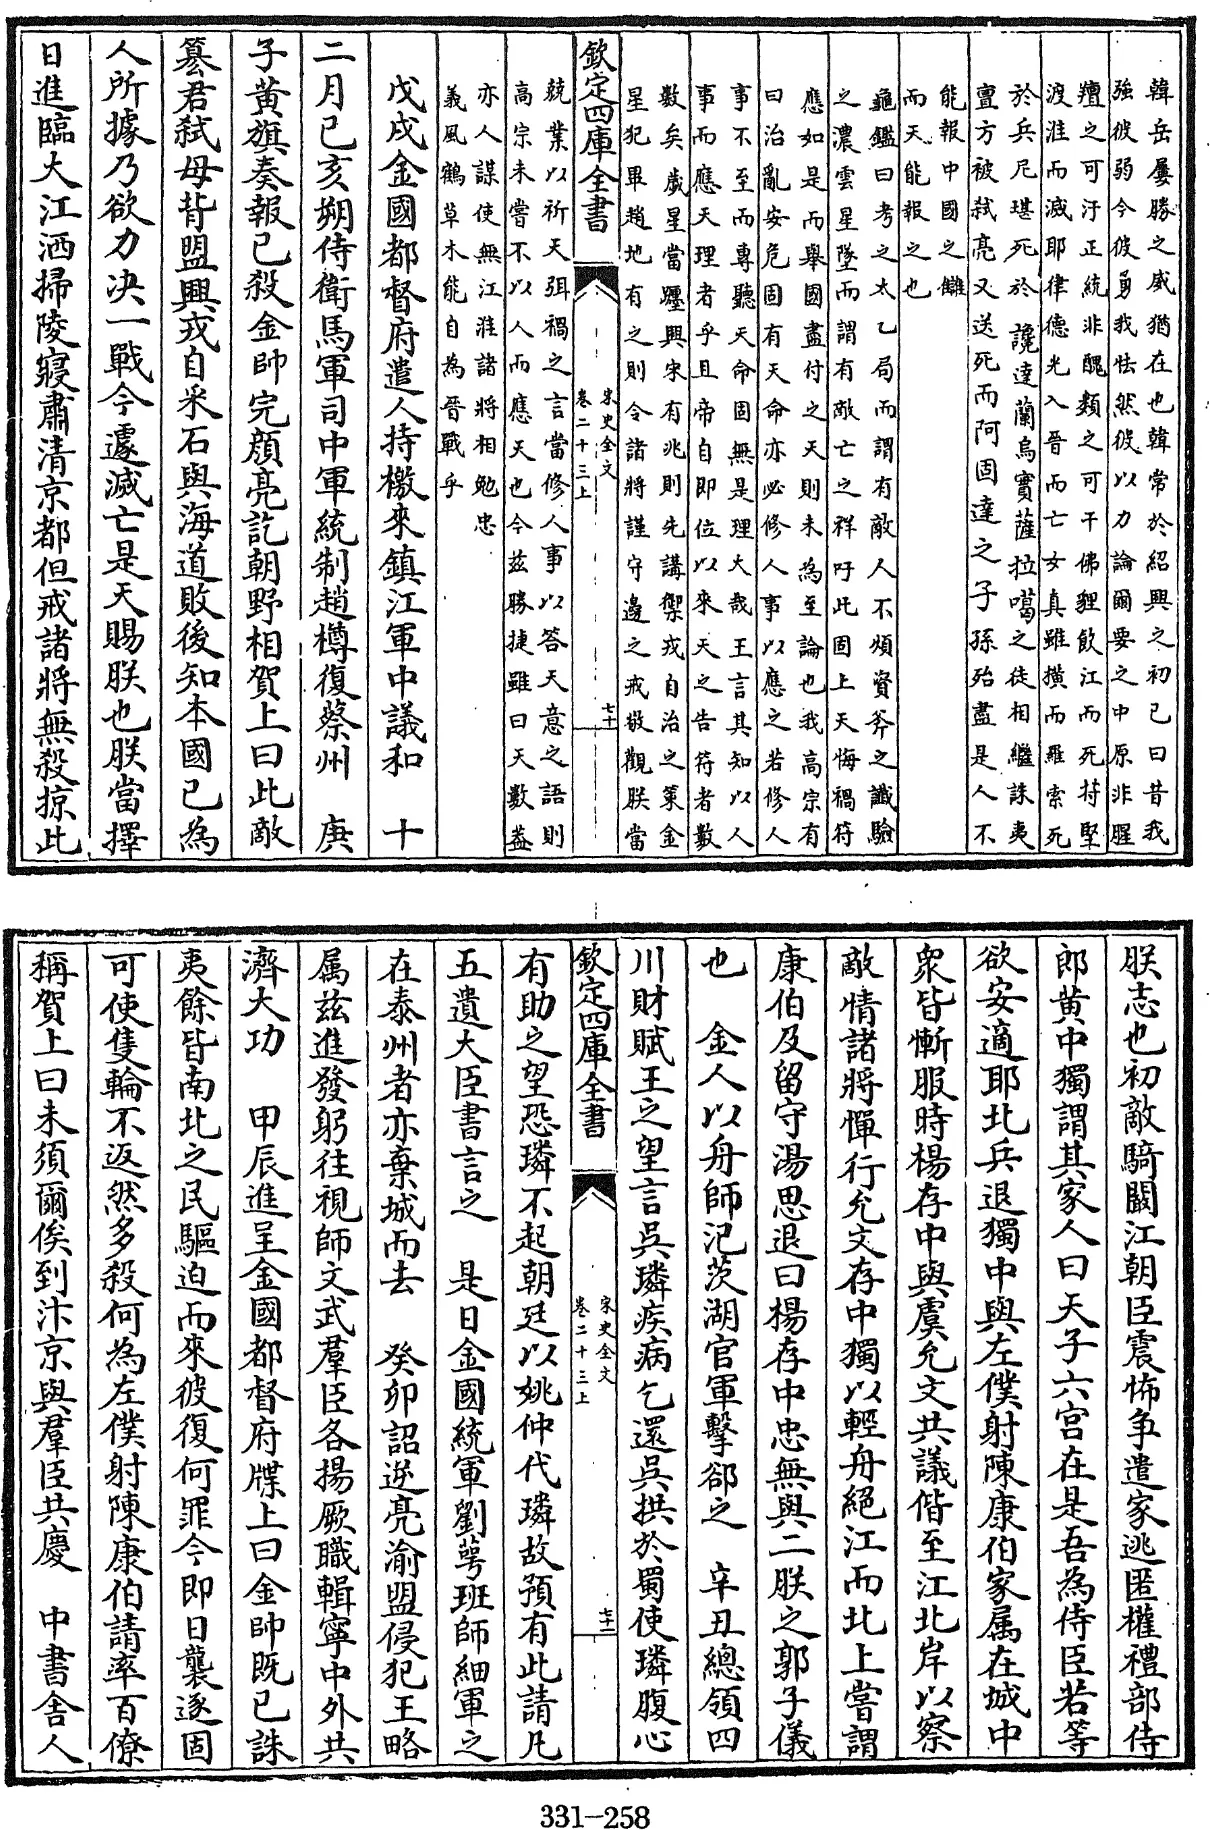 韓岳屢勝之威猶在也韓常於紹興之初已曰昔我
強彼弱今彼勇我怯然彼以力論爾要之中原非腥
羶之可汙正統非醜類之可干佛貍飲江而死苻堅
渡淮而滅耶律德光入晉而亡女真雖横而羅索死
於兵尼堪死於讒達蘭烏實薩拉噶之徒相繼誅夷
亶方被弑亮又送死而阿固達之子孫殆盡是人不
能報中國之讎
而天能報之也
龜鑑曰考之太乙局而謂有敵人不煩資斧之讖驗
之濃雲星墜而謂有敵亡之祥吁此固上天悔禍符
應如是而舉國盡付之天則未為至論也我高宗有
曰治亂安危固有天命亦必修人事以應之若修人
事不至而專聽天命固無是理大哉王言其知以人
事而應天理者乎且帝自即位以來天之告符者數
數矣歲星當躔興宋有兆則先講禦戎自治之策金
星犯畢趙地有之則令諸將謹守邊之戒敬觀朕當
欽定四庫全書
宋史全文
卷二十三上
七十
兢業以祈天弭禍之言當修人事以答天意之語則
高宗未嘗不以人而應天也今兹勝捷雖曰天數蓋
亦人謀使無江淮諸將相勉忠
義風鶴草木能自為晉戰乎
戊戌金國都督府遣人持檄來鎮江軍中議和　十
二月己亥朔侍衛馬軍司中軍統制趙樽復蔡州　庚
子黄旗奏報已殺金帥完顔亮訖朝野相賀上曰此敵
簒君弑母背盟興戎自采石與海道敗後知本國已為
人所據乃欲力决一戰今遽滅亡是天賜朕也朕當擇
日進臨大江洒掃陵寢肅清京都但戒諸將無殺掠此
朕志也初敵騎闞江朝臣震怖争遣家逃匿權禮部侍
郎黄中獨謂其家人曰天子六宫在是吾為侍臣若等
欲安適耶北兵退獨中與左僕射陳康伯家属在城中
衆皆慚服時楊存中與虞允文共議偕至江北岸以察
敵情諸將憚行允文存中獨以輕舟絕江而北上嘗謂
康伯及留守湯思退曰楊存中忠無與二朕之郭子儀
也　金人以舟師汜茨湖官軍擊郤之　辛丑總領四
川財賦王之望言吳璘疾病乞還吳拱於蜀使璘腹心
欽定四庫全書
宋史全文
卷二十三上
七十一
有助之望恐璘不起朝廷以姚仲代璘故預有此請凡
五遺大臣書言之　是日金國統軍劉萼班師細軍之
在泰州者亦棄城而去　癸卯詔逆亮渝盟侵犯王略
属兹進發躬往視師文武羣臣各揚厥職輯寧中外共
濟大功　甲辰進呈金國都督府牒上曰金帥既已誅
夷餘皆南北之民驅迫而來彼復何罪今即日襲逐固
可使隻輪不返然多殺何為左僕射陳康伯請率百僚
稱賀上曰未須爾俟到汴京與羣臣共慶　中書舍人
331-258